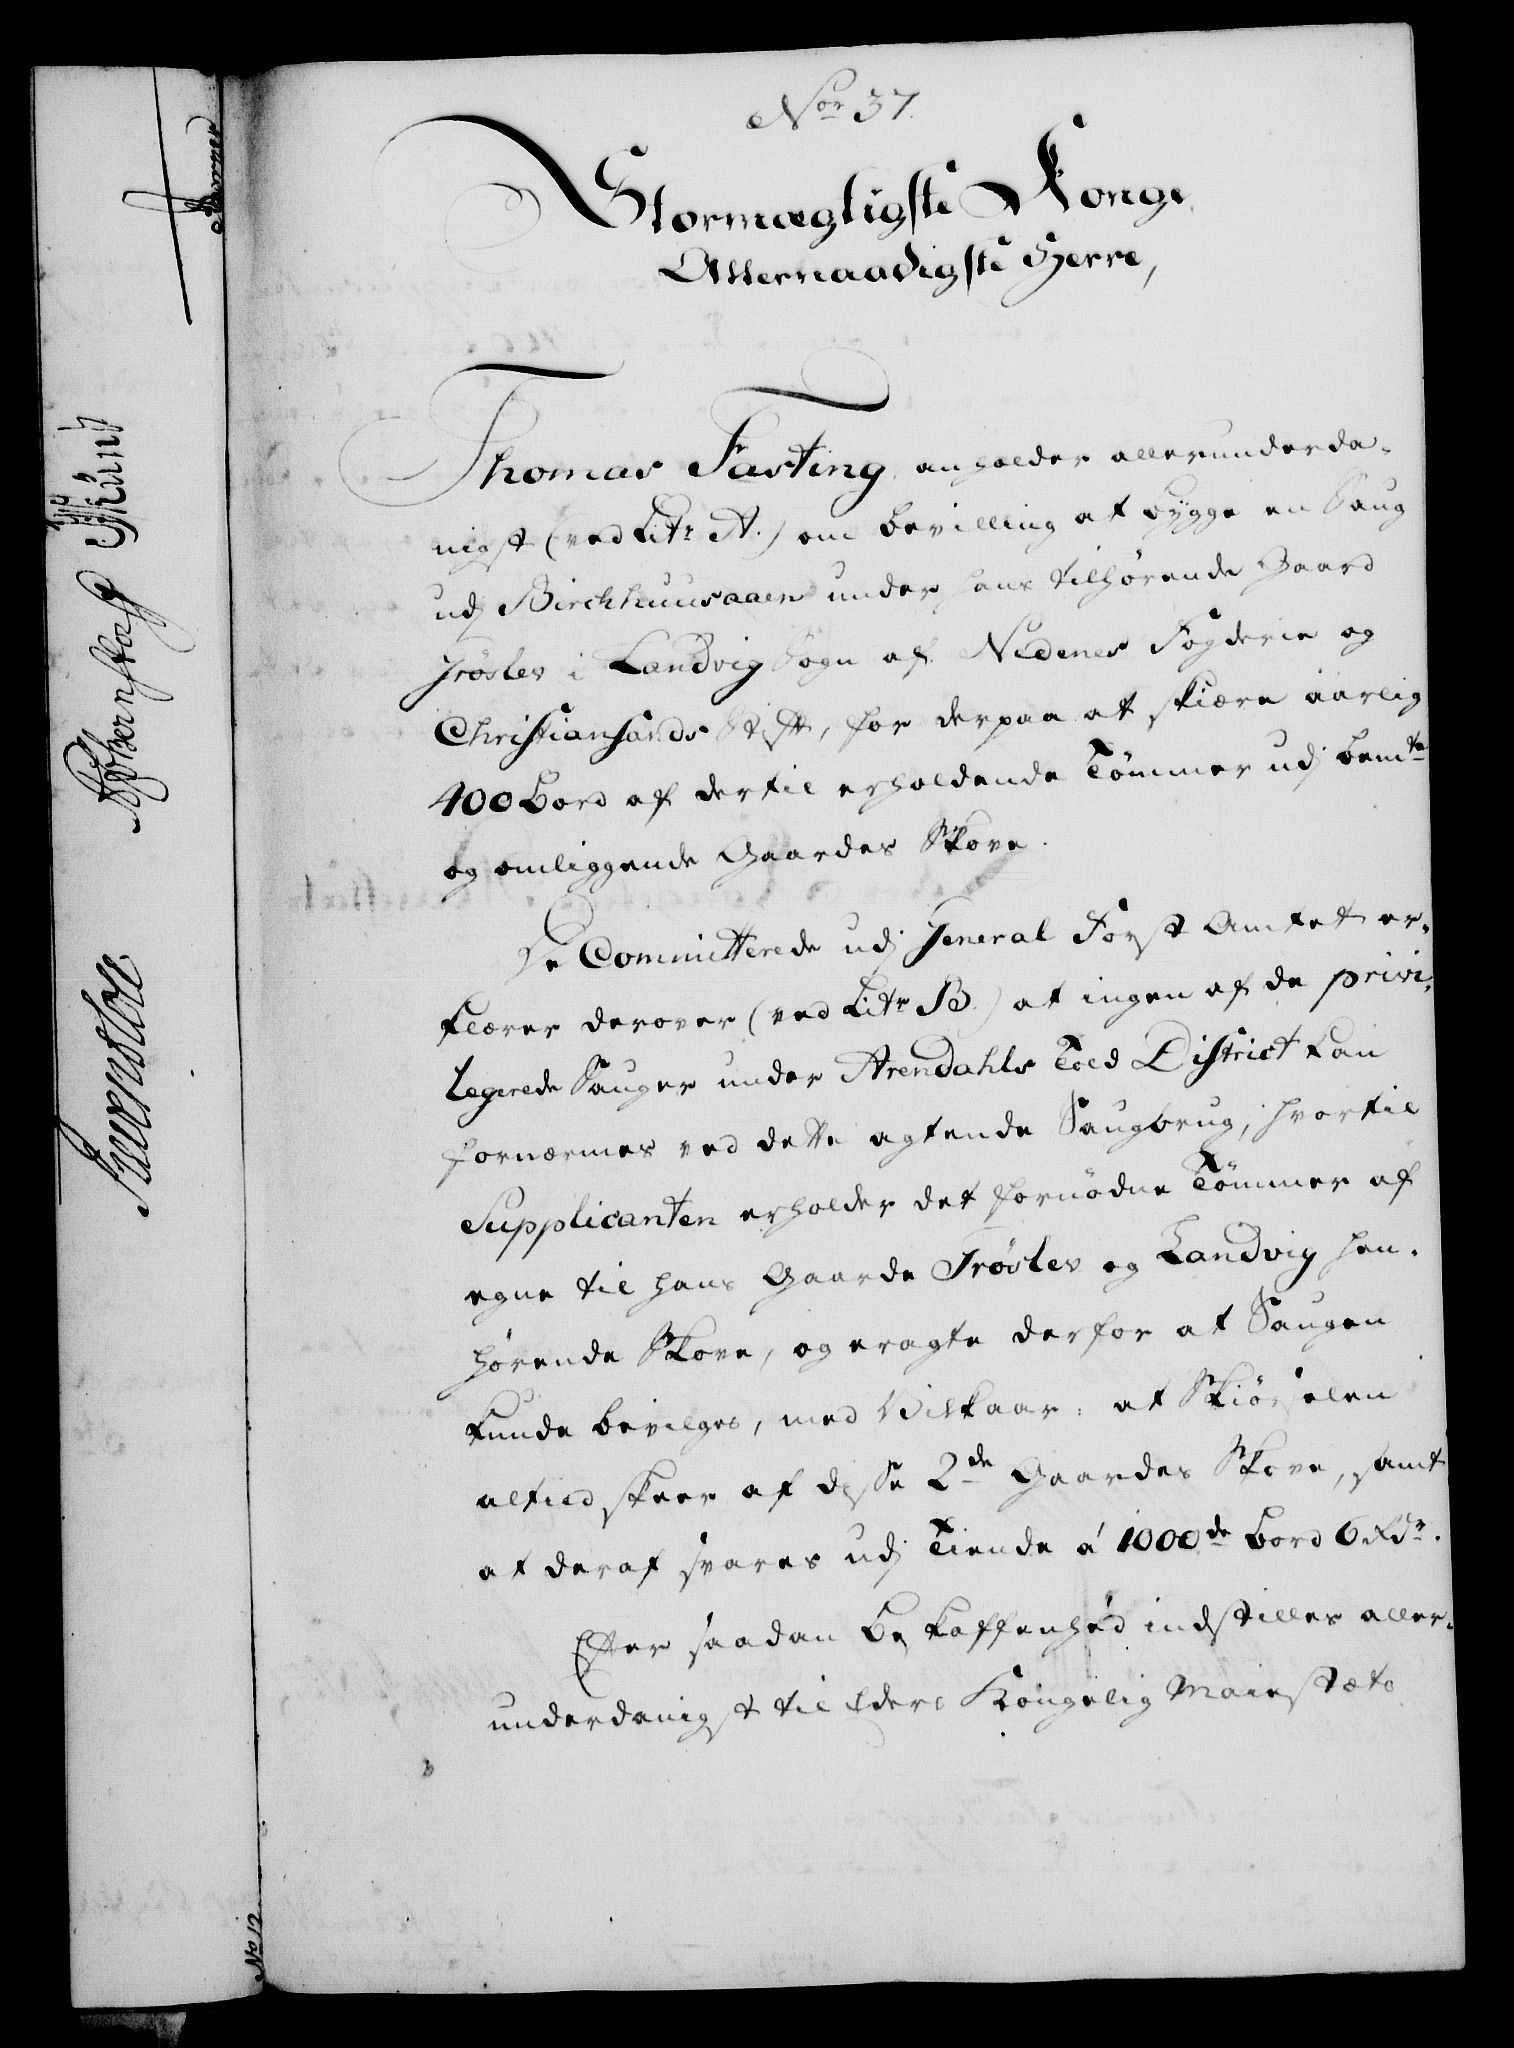 Nor 37.
Stormægtigste Konge
Allernaadigste Herre,
Thomas Fasting anholder allerunderda-
nigst (ved Litr A.) om bevilling at bygge en Saug
udj Birchhuusaaen under hans tilhørende Gaard
Trøslev i Landvig Sogn af Nedenes Fogderie og
Christiansands Stift, for derpaa at skiære aarlig
400 bord af dertil erholdende Tømmer udj bemte
og omliggende Gaardes Skove.
De Committerede udj General Forst Amtet er-
klærer derover (ved Litr B.) at ingen af de privi-
legerede Sauger under Arendahls Told District kan
fornærmes ved dette agtende Saugbrug, hvortil
Supplicanten erholder det fornødne Tømmer af
egne til hans Gaarde Trøslev og Landvig hen-
hørende Skove, og eragte derfor at Saugen
kunde bevilges, med Vilkaar: at Skiørselen
altiid skeer af disse 2de Gaardes Skove, samt
at deraf svares udj Tiende á 1000de bord 6 Rdr.
Efter saadan Beskaffenhed indstilles aller-
underdanigst til Eders Kongelig Maiestæts
No 12